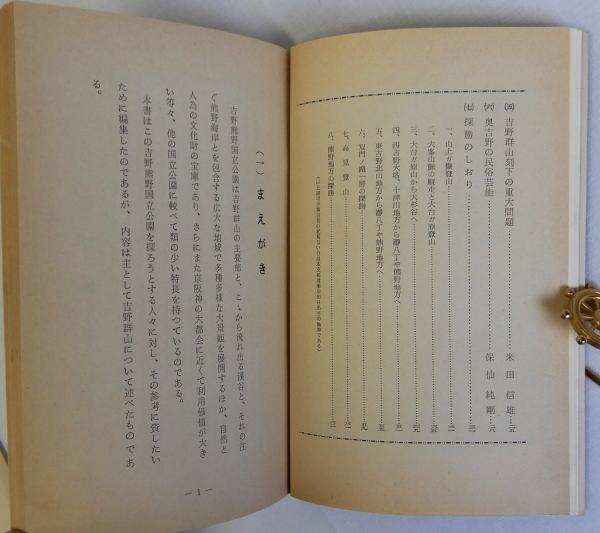 ㈤ 吉野群山刻下の重大問題……米田信雄…
㈥ 奥吉野の民俗芸能……保仙純剛…
㈦ 探勝のしおり……
一、山上ガ嶽登山……
二、大峯山脈の縦走と大台ガ原登山……
三、大台ガ原山から大杉谷へ……
四、西吉野大塔、十津川地方から瀞八丁や熊野地方へ……
五、東吉野北山地方から瀞八丁や熊野地方へ……
六、双門ノ滝一帯の探勝……
七、高見登山……
八、熊野地方の探勝……
(一) まえがき
吉野熊野国立公園は吉野群山の主要部と、こゝから流れ出る渓谷と、それの注
ぐ熊野海岸とを包含する広大な地域で多種多様な大景観を展開するほか、自然と
人為の文化財の宝庫であり、さらにまた京阪神の大都会に近くて利用価値が大き
い等々、他の国立公園に較べて類の少い特長を持つているのである。
本書はこの吉野熊野国立公園を探ろうとする人々に対し、その参考に資したい
ために編集したのであるが、内容は主として吉野群山について述べたものであ
る。
— 1 —